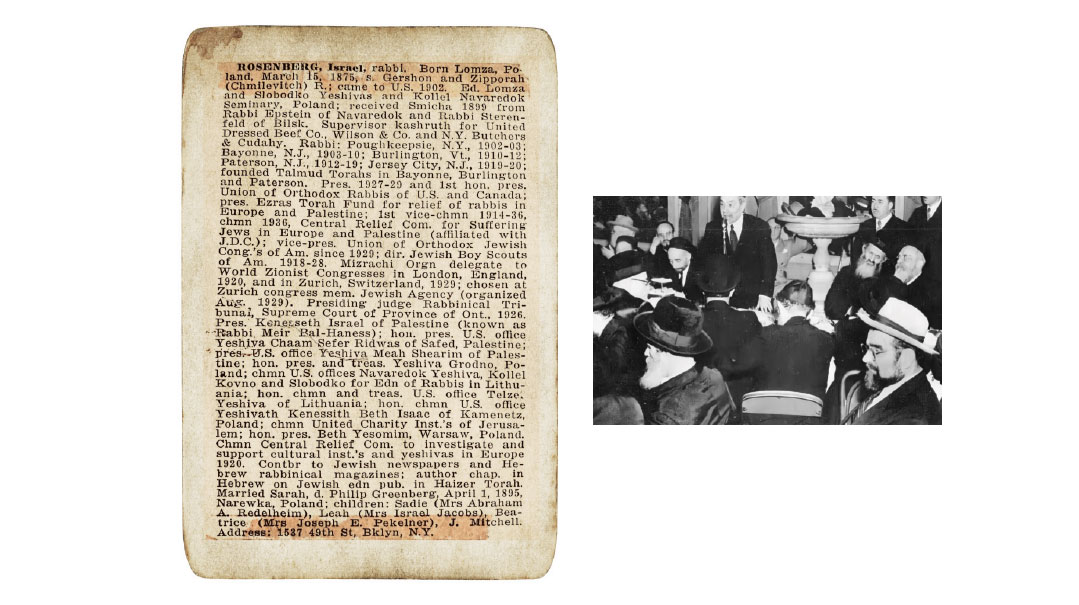 ROSENBERG, Israel, rabbi. Born Lomza, Po-
land, March 15, 1875, s. Gershon and Zipporah
(Chmilevitch) R.; came to U.S. 1902. Ed. Lomza
and Slobodko Yeshivas and Kollel Navaredok
Seminary, Poland; received Smicha 1899 from
Rabbi Epstein of Navaredok and Rabbi Steren-
feld of Bilsk. Supervisor kashruth for United
Dressed Beef Co., Wilson & Co. and N.Y. Butchers
& Cudahy. Rabbi: Poughkeepsie, N.Y., 1902-03;
Bayonne, N.J., 1903-10; Burlington, Vt., 1910-12;
Paterson, N.J., 1912-19; Jersey City, N.J., 1919-20;
founded Talmud Torahs in Bayonne, Burlington
and Paterson. Pres. 1927-29 and 1st hon. pres.
Union of Orthodox Rabbis of U.S. and Canada;
pres. Ezras Torah Fund for relief of rabbis in
Europe and Palestine; 1st vice-chmn 1914-36,
chmn 1936, Central Relief Com. for Suffering
Jews in Europe and Palestine (affiliated with
J.D.C.); vice-pres. Union of Orthodox Jewish
Cong.'s of Am. since 1929; dir. Jewish Boy Scouts
of Am. 1918-28. Mizrachi Orgn delegate to
World Zionist Congresses in London, England,
1920, and in Zurich, Switzerland, 1929; chosen at
Zurich congress mem. Jewish Agency (organized
Aug. 1929). Presiding judge Rabbinical Tri-
bunal, Supreme Court of Province of Ont., 1926.
Pres. Kenesseth Israel of Palestine (known as
Rabbi Meir Bal-Haness); hon. pres. U.S. office
Yeshiva Chaam Sefer Ridwas of Safed, Palestine;
pres. U.S. office Yeshiva Meah Shearim of Pales-
tine; hon. pres. and treas. Yeshiva Grodno, Po-
land; chmn U.S. offices Navaredok Yeshiva, Kollel
Kovno and Slobodko for Edn of Rabbis in Lithu-
ania; hon. chmn and treas. U.S. office Telze.
Yeshiva of Lithuania; hon. chmn U.S. office
Yeshivath Kenessith Beth Isaac of Kamenetz,
Poland; chmn United Charity Inst.'s of Jerusa-
lem; hon. pres. Beth Yesomim, Warsaw, Poland.
Chmn Central Relief Com. to investigate and
support cultural inst.'s and yeshivas in Europe
1920. Contbr to Jewish newspapers and He-
brew rabbinical magazines; author chap. in
Hebrew on Jewish edn pub. in Haizer Torah.
Married Sarah, d. Philip Greenberg, April 1, 1895,
Narewka, Poland; children: Sadie (Mrs Abraham
A. Redelheim), Leah (Mrs Israel Jacobs), Bea-
trice (Mrs Joseph E. Pekelner), J. Mitchell.
Address: 1537 49th St, Bklyn, N.Y.